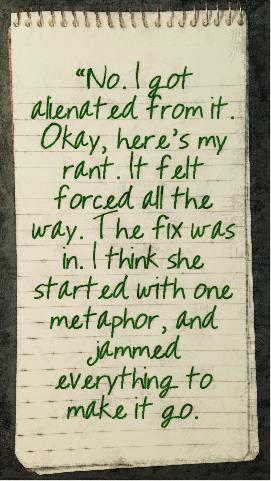 “No. I got
alienated from it.
Okay, here's my
rant. It felt
forced all the
way. The fix was
in. I think she
started with one
metaphor, and
jammed
everything to
make it go.